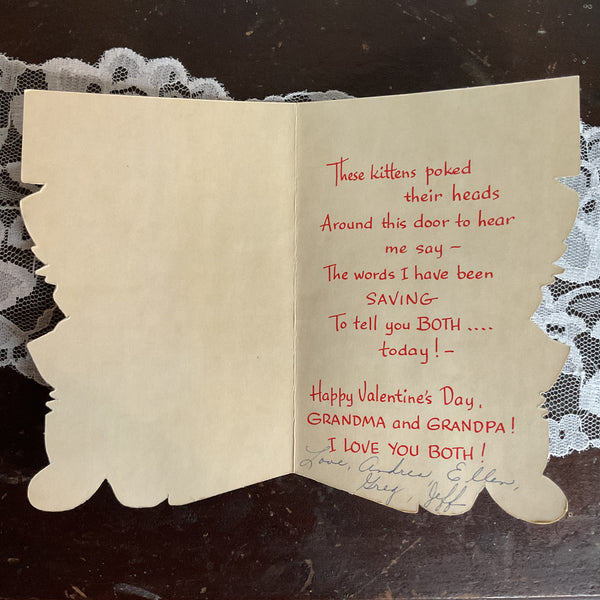 These kittens poked
their heads
Around this door to hear
me say –
The words I have been
SAVING
To tell you BOTH ....
today! –
Happy Valentine's Day,
GRANDMA and GRANDPA!
I LOVE YOU BOTH!
Love, Andrea Ellen,
Greg, Jeff